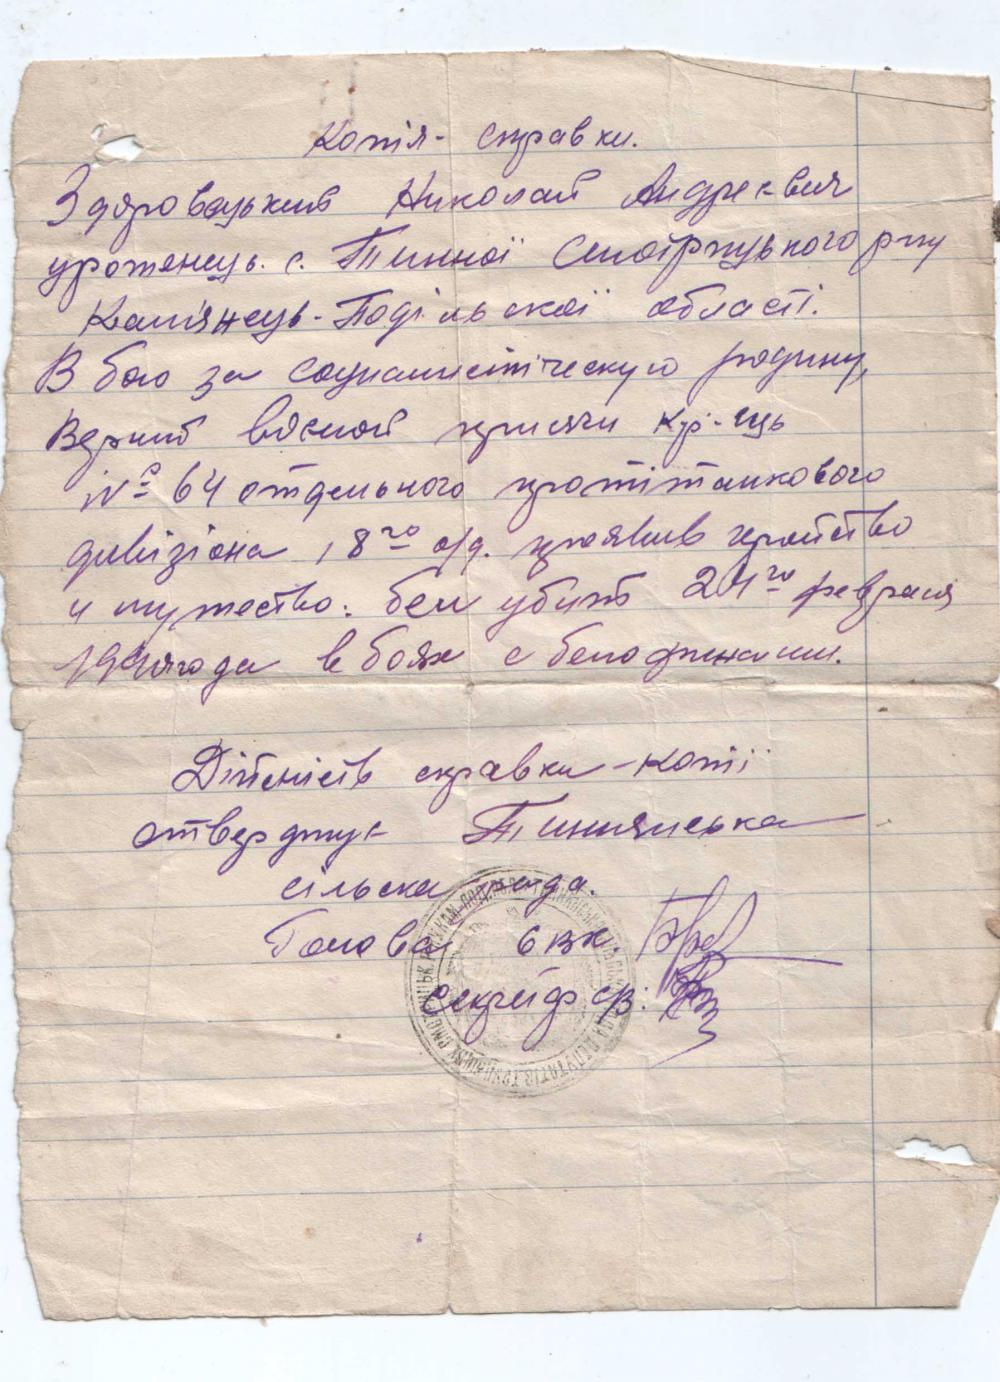 Копія - справки.
Здоровецький Николай Андреевич
уроженець с. Тинної Смотрицького р-ну
Камянець-Подільскої області.
В бою за социалистическую родину,
верний воєной присяги кр-ець
№ 64 отдельного протітанкового
дивізіона 18го с/д. проявив геройство
и мужество: був убит 24го февраля
1940 года в боях с белофинами.
Дійсність справки - копії
стверджує Тиннянська
сільска рада.
Голова
Секретар с/р: